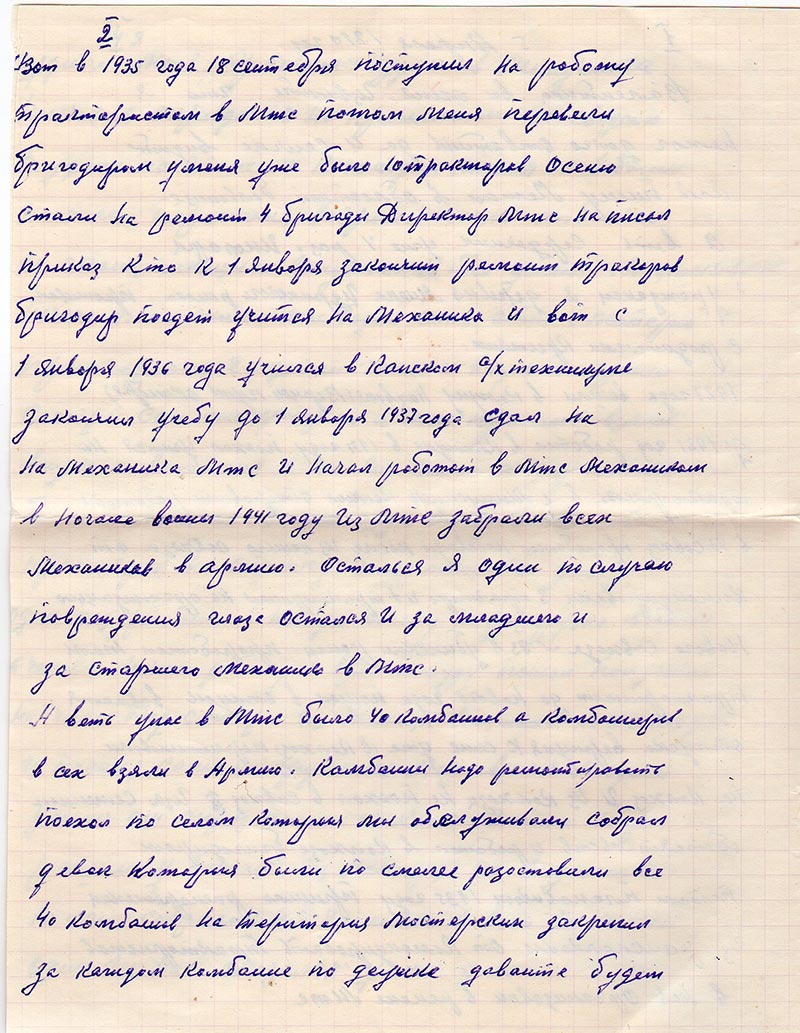 2
Вот в 1935 года 18 сентебря поступил на роботу
трактористом в Мтс потом меня перевели
бригодиром уменя уже было 10 тракторов Осеню
стали на ремонт 4 бригады Директор Мтс на писал
приказ Кто к 1 января закончит ремонт тракоров
бригодир поедет учится на механика и вот с
1 января 1936 года учился в Канском с/х техникуме
закончил учебу до 1 января 1937 года сдал на
на механика Мтс и начал роботат в Мтс механиком
в начале воины 1941 году из Мтс забрали всех
механиков в армию. Осталься я один по случаю
повреждения глаза остался и за младшего и
за старшего механика в Мтс.
А веть унас в Мтс было 40 комбаинов а комбаинеров
в сех взяли в Армию. Камбаины надо ремонтировать
поехал по селам которыя мы обслуживали собрал
девак которыя были по смелее разоставили все
40 комбаинв на територия мастерских закрепил
за каждом комбаине по девушке давайте будем